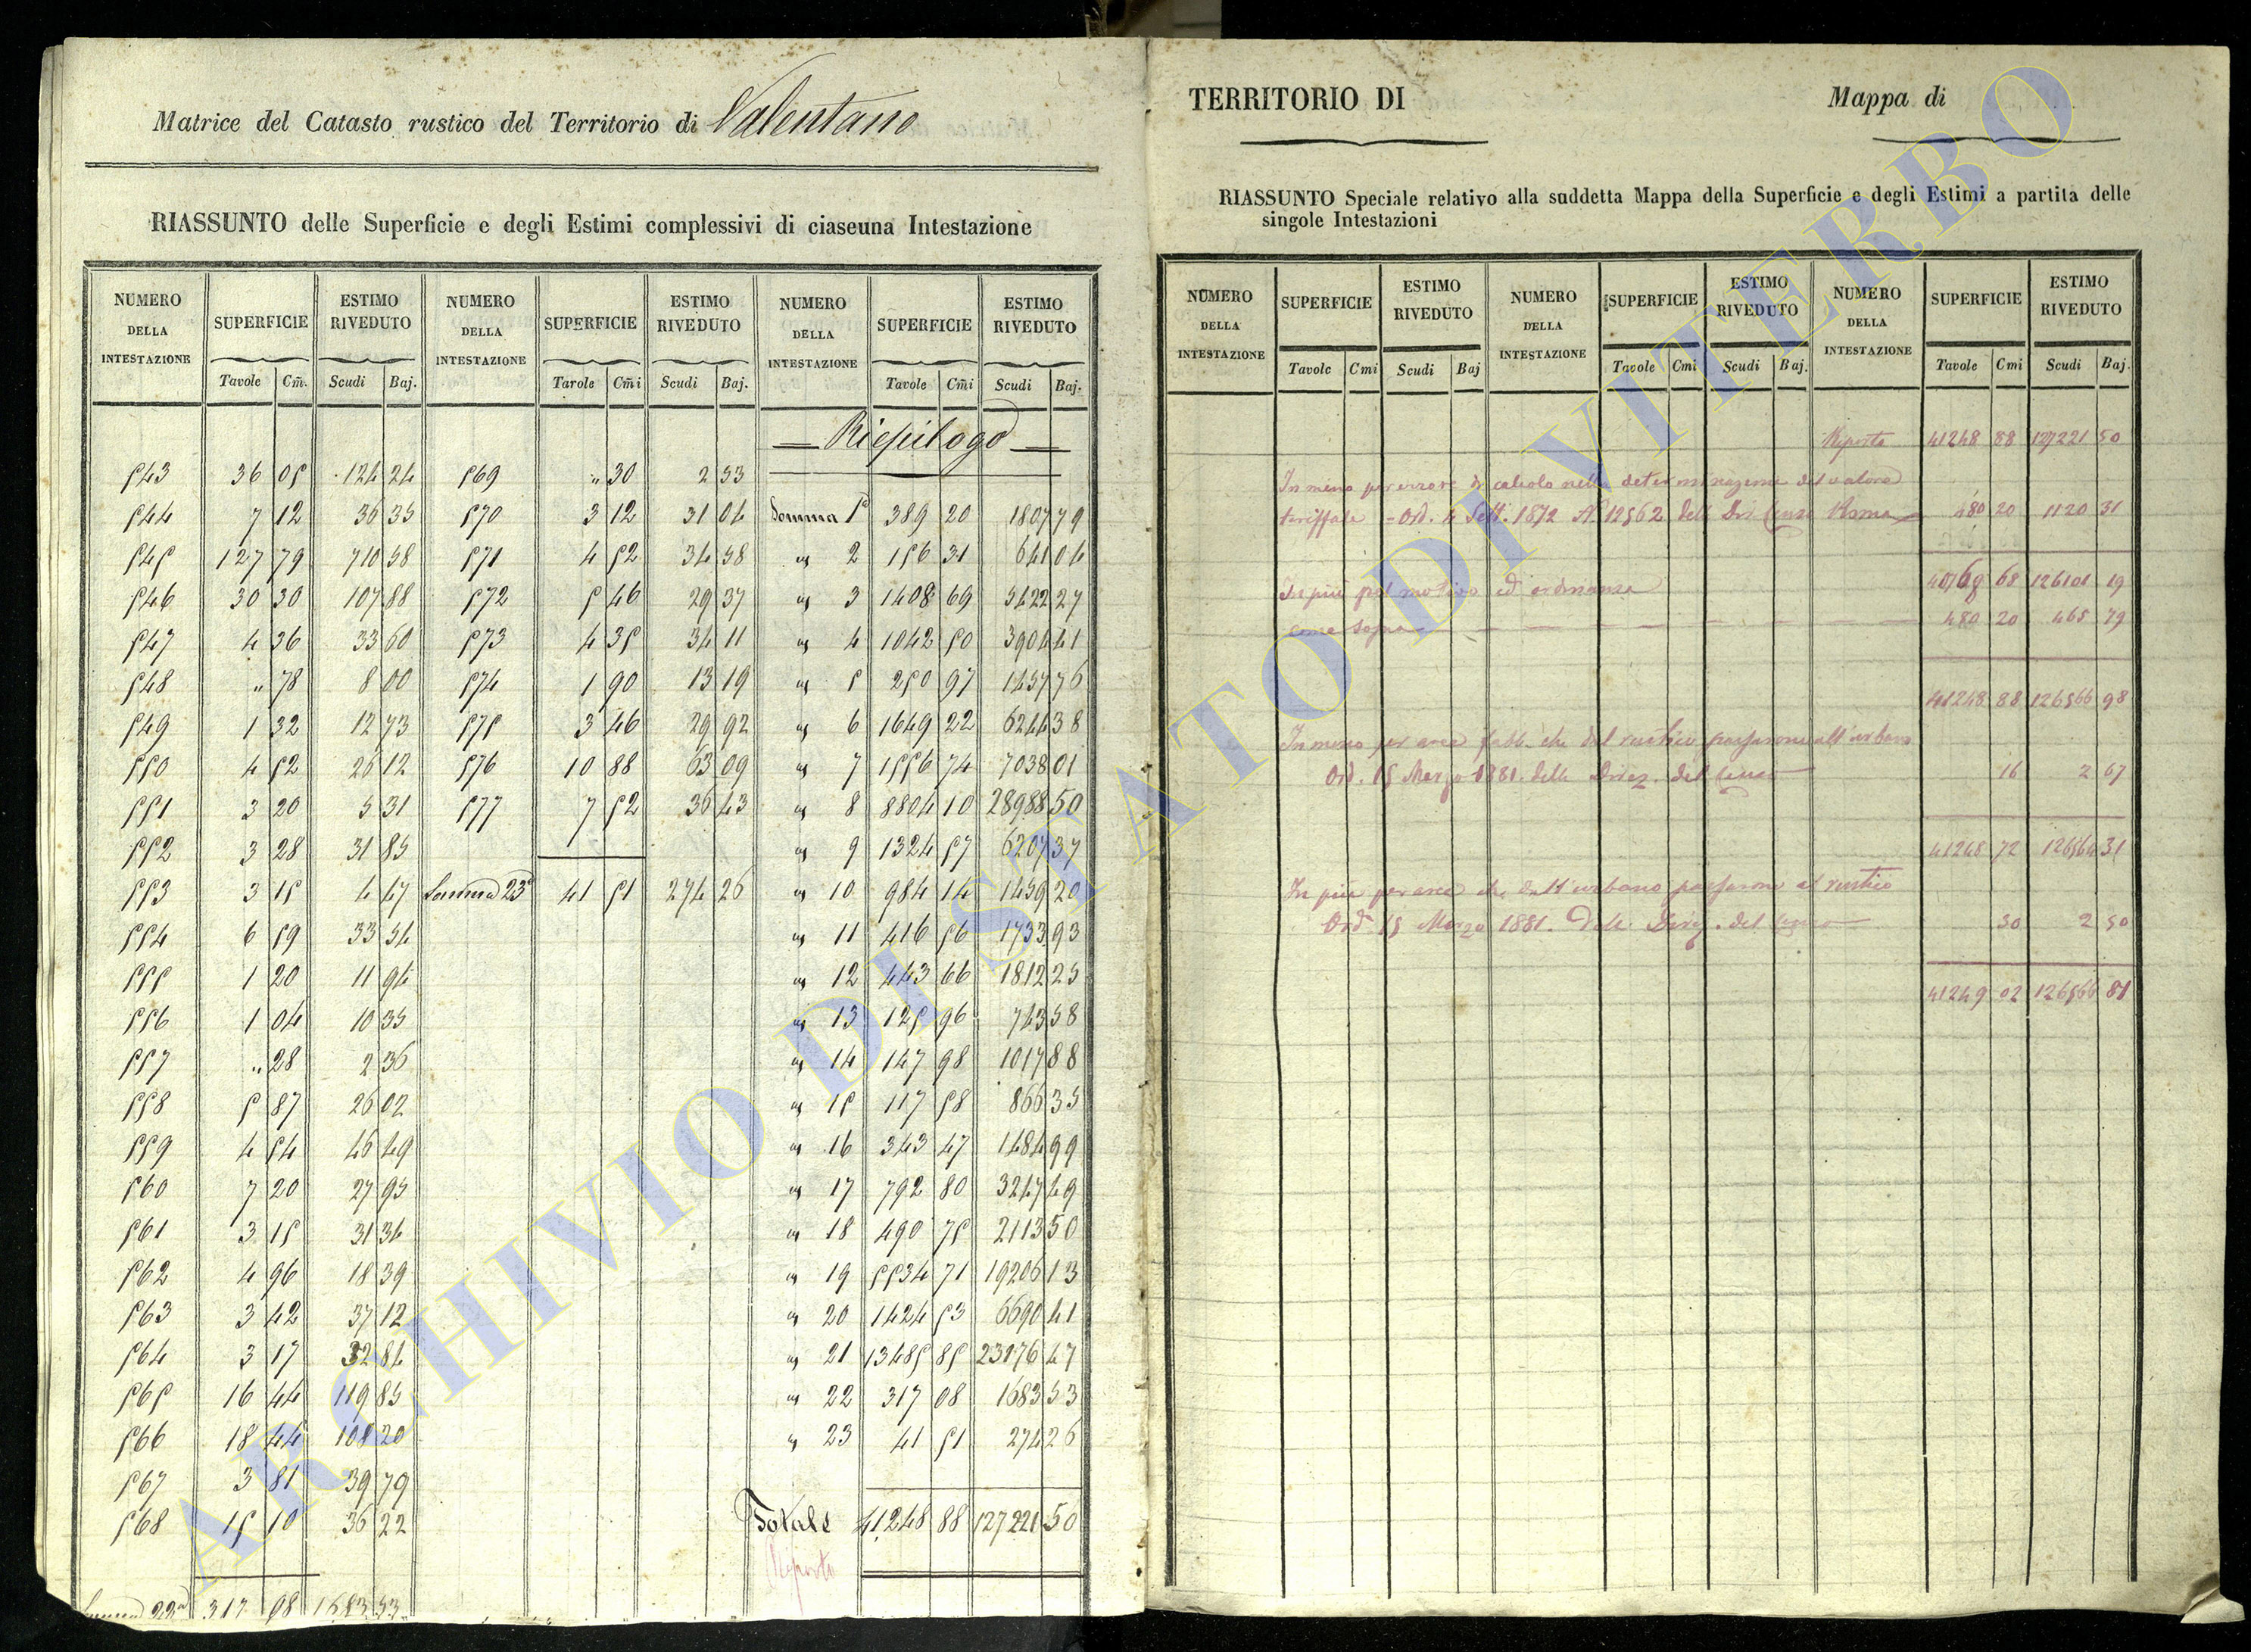 Matrice del Catasto rustico del Territorio di Valentano
RIASSUNTO delle Superficie e degli Estimi complessivi di ciaseuna Intestazione
NUMERO DELLA INTESTAZIONE SUPERFICIE ESTIMO RIVEDUTO NUMERO DELLA INTESTAZIONE SUPERFICIE ESTIMO RIVEDUTO NUMERO DELLA INTESTAZIONE SUPERFICIE ESTIMO RIVEDUTO
Tavole Cm̄. Scudi Baj. Tavole Cm̄i Scudi Baj. Tavole Cm̄i Scudi Baj.
— Riepilogo —
543 36 05 124 24 569 " 30 2 53
544 7 12 36 35 570 3 12 31 04 Somma 1ª 389 20 1807 79
545 127 79 710 58 571 4 52 34 58 " 2 156 31 641 04
546 30 30 107 88 572 5 46 29 37 " 3 1408 69 5422 27
547 4 36 33 60 573 4 35 34 11 " 4 1042 50 3904 41
548 " 78 8 00 574 1 90 13 19 " 5 250 97 1457 76
549 1 32 12 73 575 3 46 29 92 " 6 1649 22 6244 38
550 4 52 26 12 576 10 88 63 09 " 7 1556 74 7038 01
551 3 20 5 31 577 7 52 36 43 " 8 8804 10 28988 50
552 3 28 31 85 " 9 1324 57 6207 37
553 3 15 4 47 Somma 23ª 41 51 274 26 " 10 984 14 1459 20
554 6 59 33 54 " 11 416 56 1733 93
555 1 20 11 94 " 12 443 66 1812 25
556 1 04 10 35 " 13 125 96 743 58
557 " 28 2 36 " 14 147 98 1017 88
558 5 87 26 02 " 15 117 58 866 35
559 4 54 46 49 " 16 343 47 1484 99
560 7 20 27 95 " 17 792 80 3247 49
561 3 15 31 34 " 18 490 75 2113 50
562 4 96 18 39 " 19 5534 71 19206 13
563 3 42 37 12 " 20 1424 53 6690 41
564 3 17 32 84 " 21 13485 85 23176 47
565 16 44 119 85 " 22 317 08 1683 53
566 18 44 108 20 " 23 41 51 274 26
567 3 81 39 79
568 15 10 36 22 Totale 41248 88 127221 50
Riporto
Somma 22ª 317 08 1683 53
TERRITORIO DI
Mappa di
RIASSUNTO Speciale relativo alla suddetta Mappa della Superficie e degli Estimi a partita delle
singole Intestazioni
NUMERO DELLA INTESTAZIONE SUPERFICIE ESTIMO RIVEDUTO NUMERO DELLA INTESTAZIONE SUPERFICIE ESTIMO RIVEDUTO NUMERO DELLA INTESTAZIONE SUPERFICIE ESTIMO RIVEDUTO
Tavole Cmi Scudi Baj Tavole Cmi Scudi Baj. Tavole Cmi Scudi Baj.
Riporto 41248 88 127221 50
In meno per errore di calcolo nella determinazione del valore
tariffale - Ord. 4 Sett. 1872 N. 12562 della Dir. Censo Roma 480 20 1120 31
40768 68 126101 19
In più pel motivo ed ordinanza
come sopra 480 20 465 79
41248 88 126566 98
In meno per area fabb. che dal rustico passarono all'urbano
Ord. 15 Marzo 1881. della Direz. del Censo 16 2 67
41248 72 126564 31
In più per area che dall'urbano passarono al rustico
Ord. 15 Marzo 1881. della Direz. del Censo 30 2 50
41249 02 126566 81
ARCHIVIO DI STATO DI VITERBO